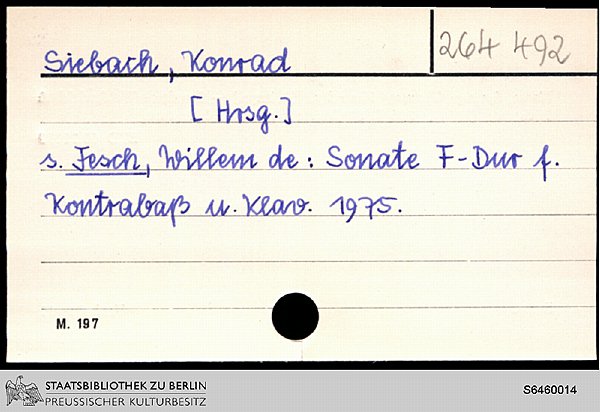 264 492
Siebach, Konrad
[Hrsg.]
s. Fesch, Willem de: Sonate F-Dur f.
Kontrabaß u. Klav. 1975.
M. 197
STAATSBIBLIOTHEK ZU BERLIN
PREUSSISCHER KULTURBESITZ
S6460014